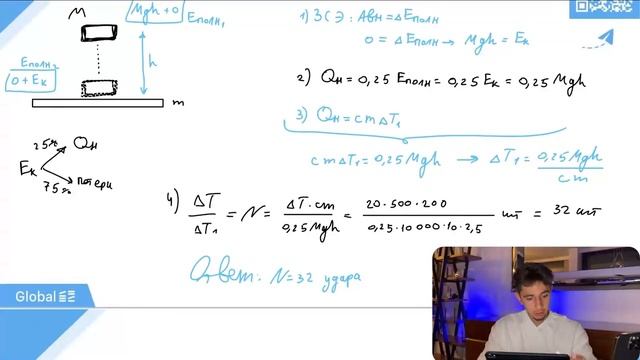 M
Mgh + 0
Eполн₁
h
Eполн₂
0 + Eк
m
25%
Qн
Eк
75%
потери
1) ЗСЭ: Aвн = ΔEполн
0 = ΔEполн → Mgh = Eк
2) Qн = 0,25 Eполн = 0,25 Eк = 0,25 Mgh
3) Qн = cmΔT₁
cmΔT₁ = 0,25Mgh → ΔT₁ = 0,25Mgh / cm
4) ΔT / ΔT₁ = N = ΔT·cm / 0,25Mgh = 20·500·200 / 0,25·10 000·10·2,5 шт = 32 шт
Ответ: N=32 удара
Global EE